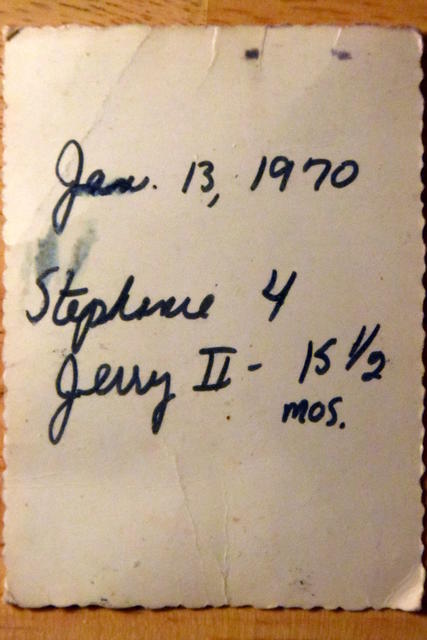 Jan. 13, 1970
Stephanie 4
Jerry II - 15 1/2
mos.